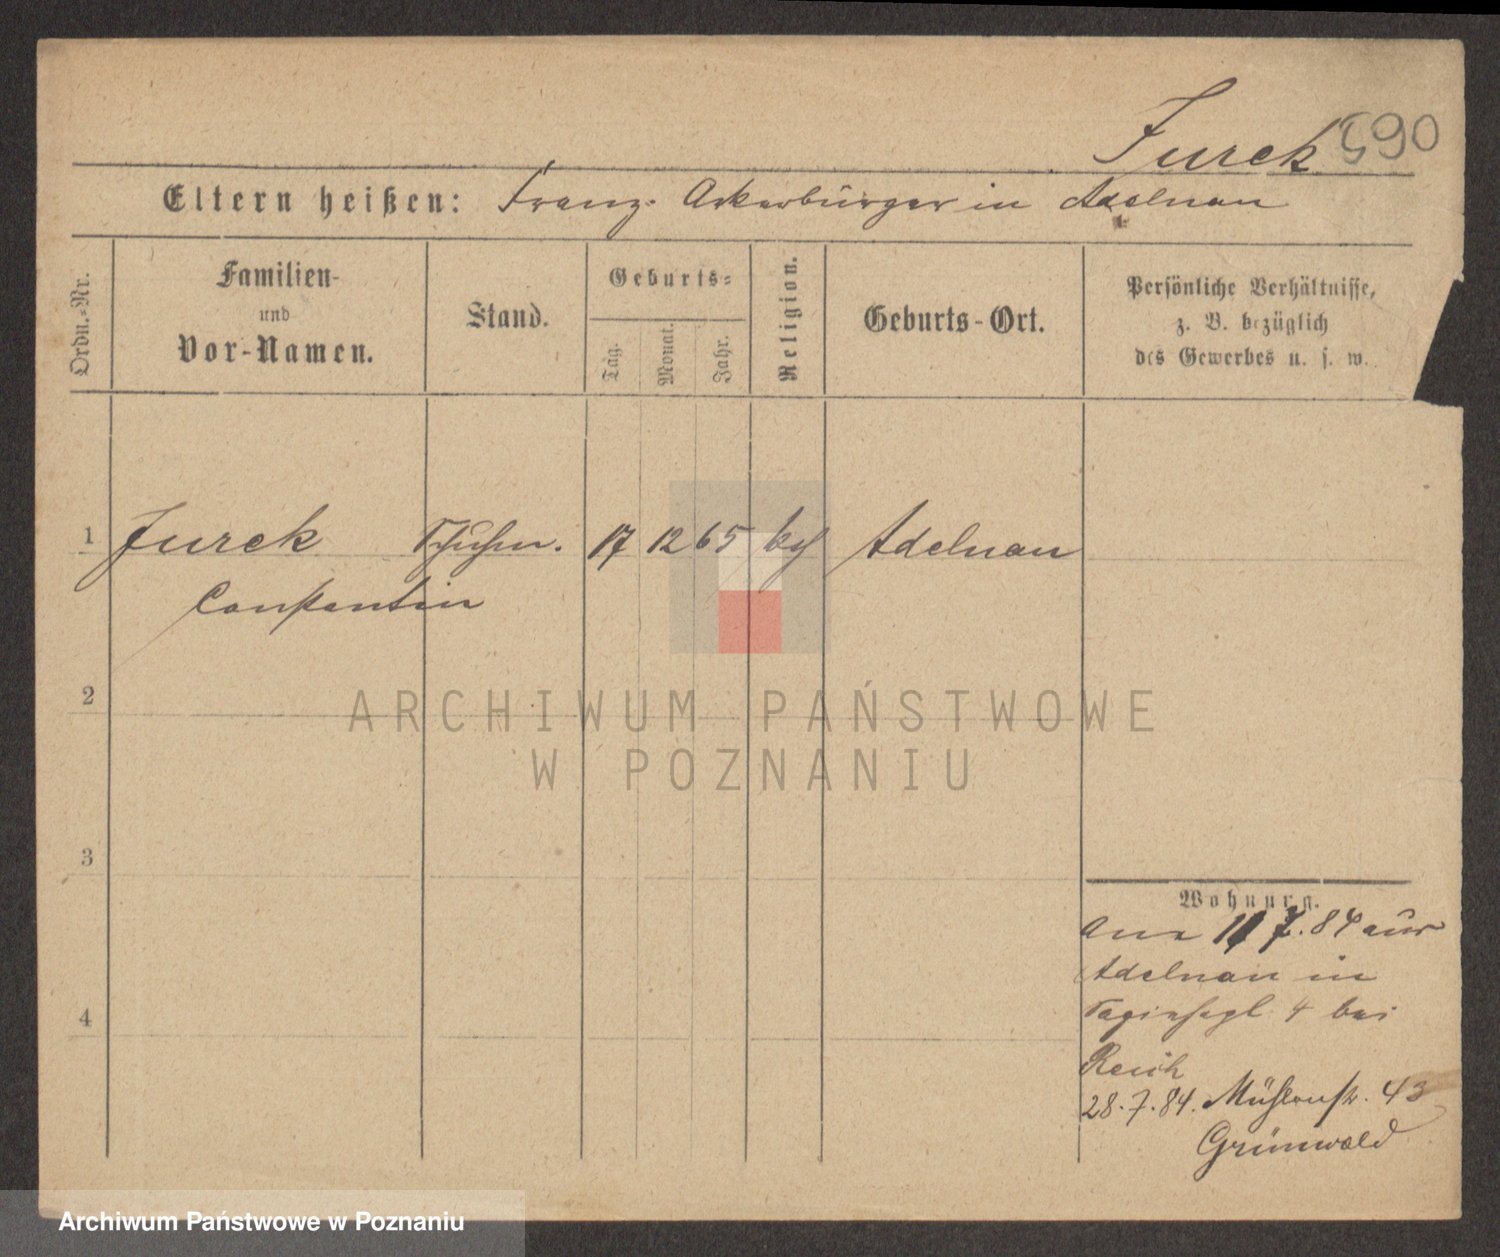 Jurek 590
Eltern heißen: Franz. Ackerbürger in Adelnau
Ordn.-Nr.
Familien-
und
Vor-Namen.
Stand.
Geburts-
Tag. Monat. Jahr.
Religion.
Geburts-Ort.
Persönliche Verhältnisse,
z. B. bezüglich
des Gewerbes u. s. w.
1 Jurek 17 12 65 Adelnau
Constantin
2
3
4
Wohnung.
7. 84 aus
Adelnau in
4 bei
Reich
28. 7. 84. Mühlenstr. 43
Grünwald
ARCHIWUM PAŃSTWOWE
W POZNANIU
Archiwum Państwowe w Poznaniu